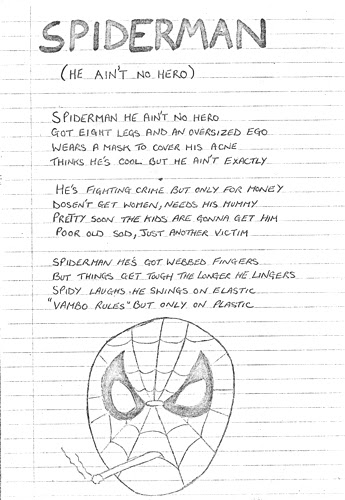 SPIDERMAN
(HE AIN'T NO HERO)
SPIDERMAN HE AIN'T NO HERO
GOT EIGHT LEGS AND AN OVERSIZED EGO
WEARS A MASK TO COVER HIS ACNE
THINKS HE'S COOL BUT HE AIN'T EXACTLY
HE'S FIGHTING CRIME BUT ONLY FOR MONEY
DOSEN'T GET WOMEN, NEEDS HIS MUMMY
PRETTY SOON THE KIDS ARE GONNA GET HIM
POOR OLD SOD, JUST ANOTHER VICTIM
SPIDERMAN HE'S GOT WEBBED FINGERS
BUT THINGS GET TOUGH THE LONGER HE LINGERS
SPIDY LAUGHS HE SWINGS ON ELASTIC
"VAMBO RULES" BUT ONLY ON PLASTIC